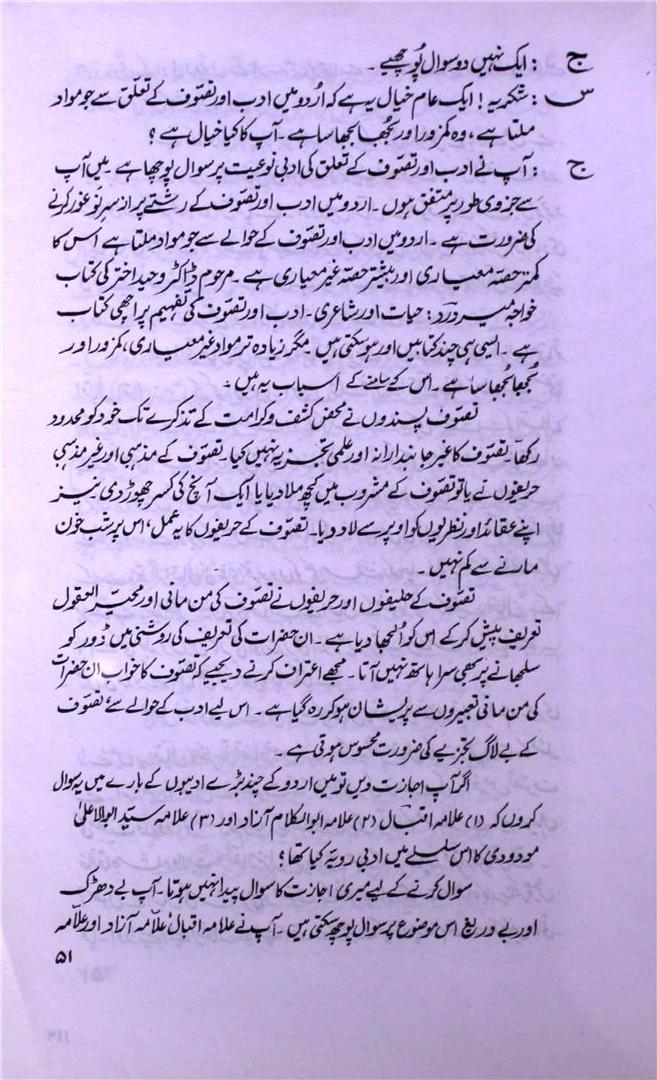 ج : ایک نہیں دو سوال پوچھیے۔
س : شکریہ! ایک عام خیال یہ ہے کہ اُردو میں ادب اور تصوّف کے تعلق سے جو مواد
ملتا ہے، وہ کمزور اور بجُھا بجھا سا ہے۔ آپ کا کیا خیال ہے؟
ج : آپ نے ادب اور تصوّف کے تعلق کی ادبی نوعیت پر سوال پوچھا ہے۔ میں آپ
سے جزوی طور پر متفق ہوں۔ اردو میں ادب اور تصوّف کے رشتے پر از سرِ نَو غور کرنے
کی ضرورت ہے۔ اردو میں ادب اور تصوّف کے حوالے سے جو مواد ملتا ہے اس کا
کمتر حصّہ معیاری اور بیشتر حصّہ غیر معیاری ہے۔ مرحوم ڈاکٹر وحید اختر کی کتاب
خواجہ میر درد: حیات اور شاعری۔ ادب اور تصوّف کی تفہیم پر اچھی کتاب
ہے۔ ایسی ہی چند کتابیں اور ہو سکتی ہیں مگر زیادہ تر مواد غیر معیاری، کمزور اور
بُجھا بُجھا سا ہے۔ اس کے سامنے کے اسباب یہ ہیں۔
تصوّف پسندوں نے محض کشف و کرامت کے تذکرے تک خود کو محدود
رکھا، تصوّف کا غیر جانبدارانہ اور علمی تجزیہ نہیں کیا۔ تصوّف کے مذہبی اور غیر مذہبی
حریفوں نے یا تو تصوّف کے مشروب میں کچھ ملا دیا یا ایک آنچ کی کسر چھوڑ دی نیز
اپنے عقائد اور نظریوں کو اوپر سے لاد دیا۔ تصوّف کے حریفوں کا یہ عمل، اس پر شب خون
مارنے سے کم نہیں۔
تصوّف کے حلیفوں اور حریفوں نے تصوّف کی من مانی اور محیّر العقول
تعریف پیش کر کے اس کو اُلجھا دیا ہے۔ ان حضرات کی تعریف کی روشنی میں ڈور کو
سلجھانے پر بھی سرا ہاتھ نہیں آتا۔ مجھے اعتراف کرنے دیجیے کہ تصوّف کا خواب ان حضرات
کی من مانی تعبیروں سے پریشان ہو کر رہ گیا ہے۔ اس لیے ادب کے حوالے سے تصوّف
کے بے لاگ تجزیے کی ضرورت محسوس ہوتی ہے۔
اگر آپ اجازت دیں تو میں اردو کے چند بڑے ادیبوں کے بارے میں یہ سوال
کروں کہ (۱) علامہ اقبال (۲) علامہ ابوالکلام آزاد اور (۳) علامہ سیّد ابوالاعلیٰ
مودودی کا اس سلسلے میں ادبی رویّہ کیا تھا؟
سوال کرنے کے لیے میری اجازت کا سوال پیدا نہیں ہوتا۔ آپ بے دھڑک
اور بے دریغ اس موضوع پر سوال پوچھ سکتی ہیں۔ آپ نے علامہ اقبال، علّامہ آزاد اور علّامہ
۵۱